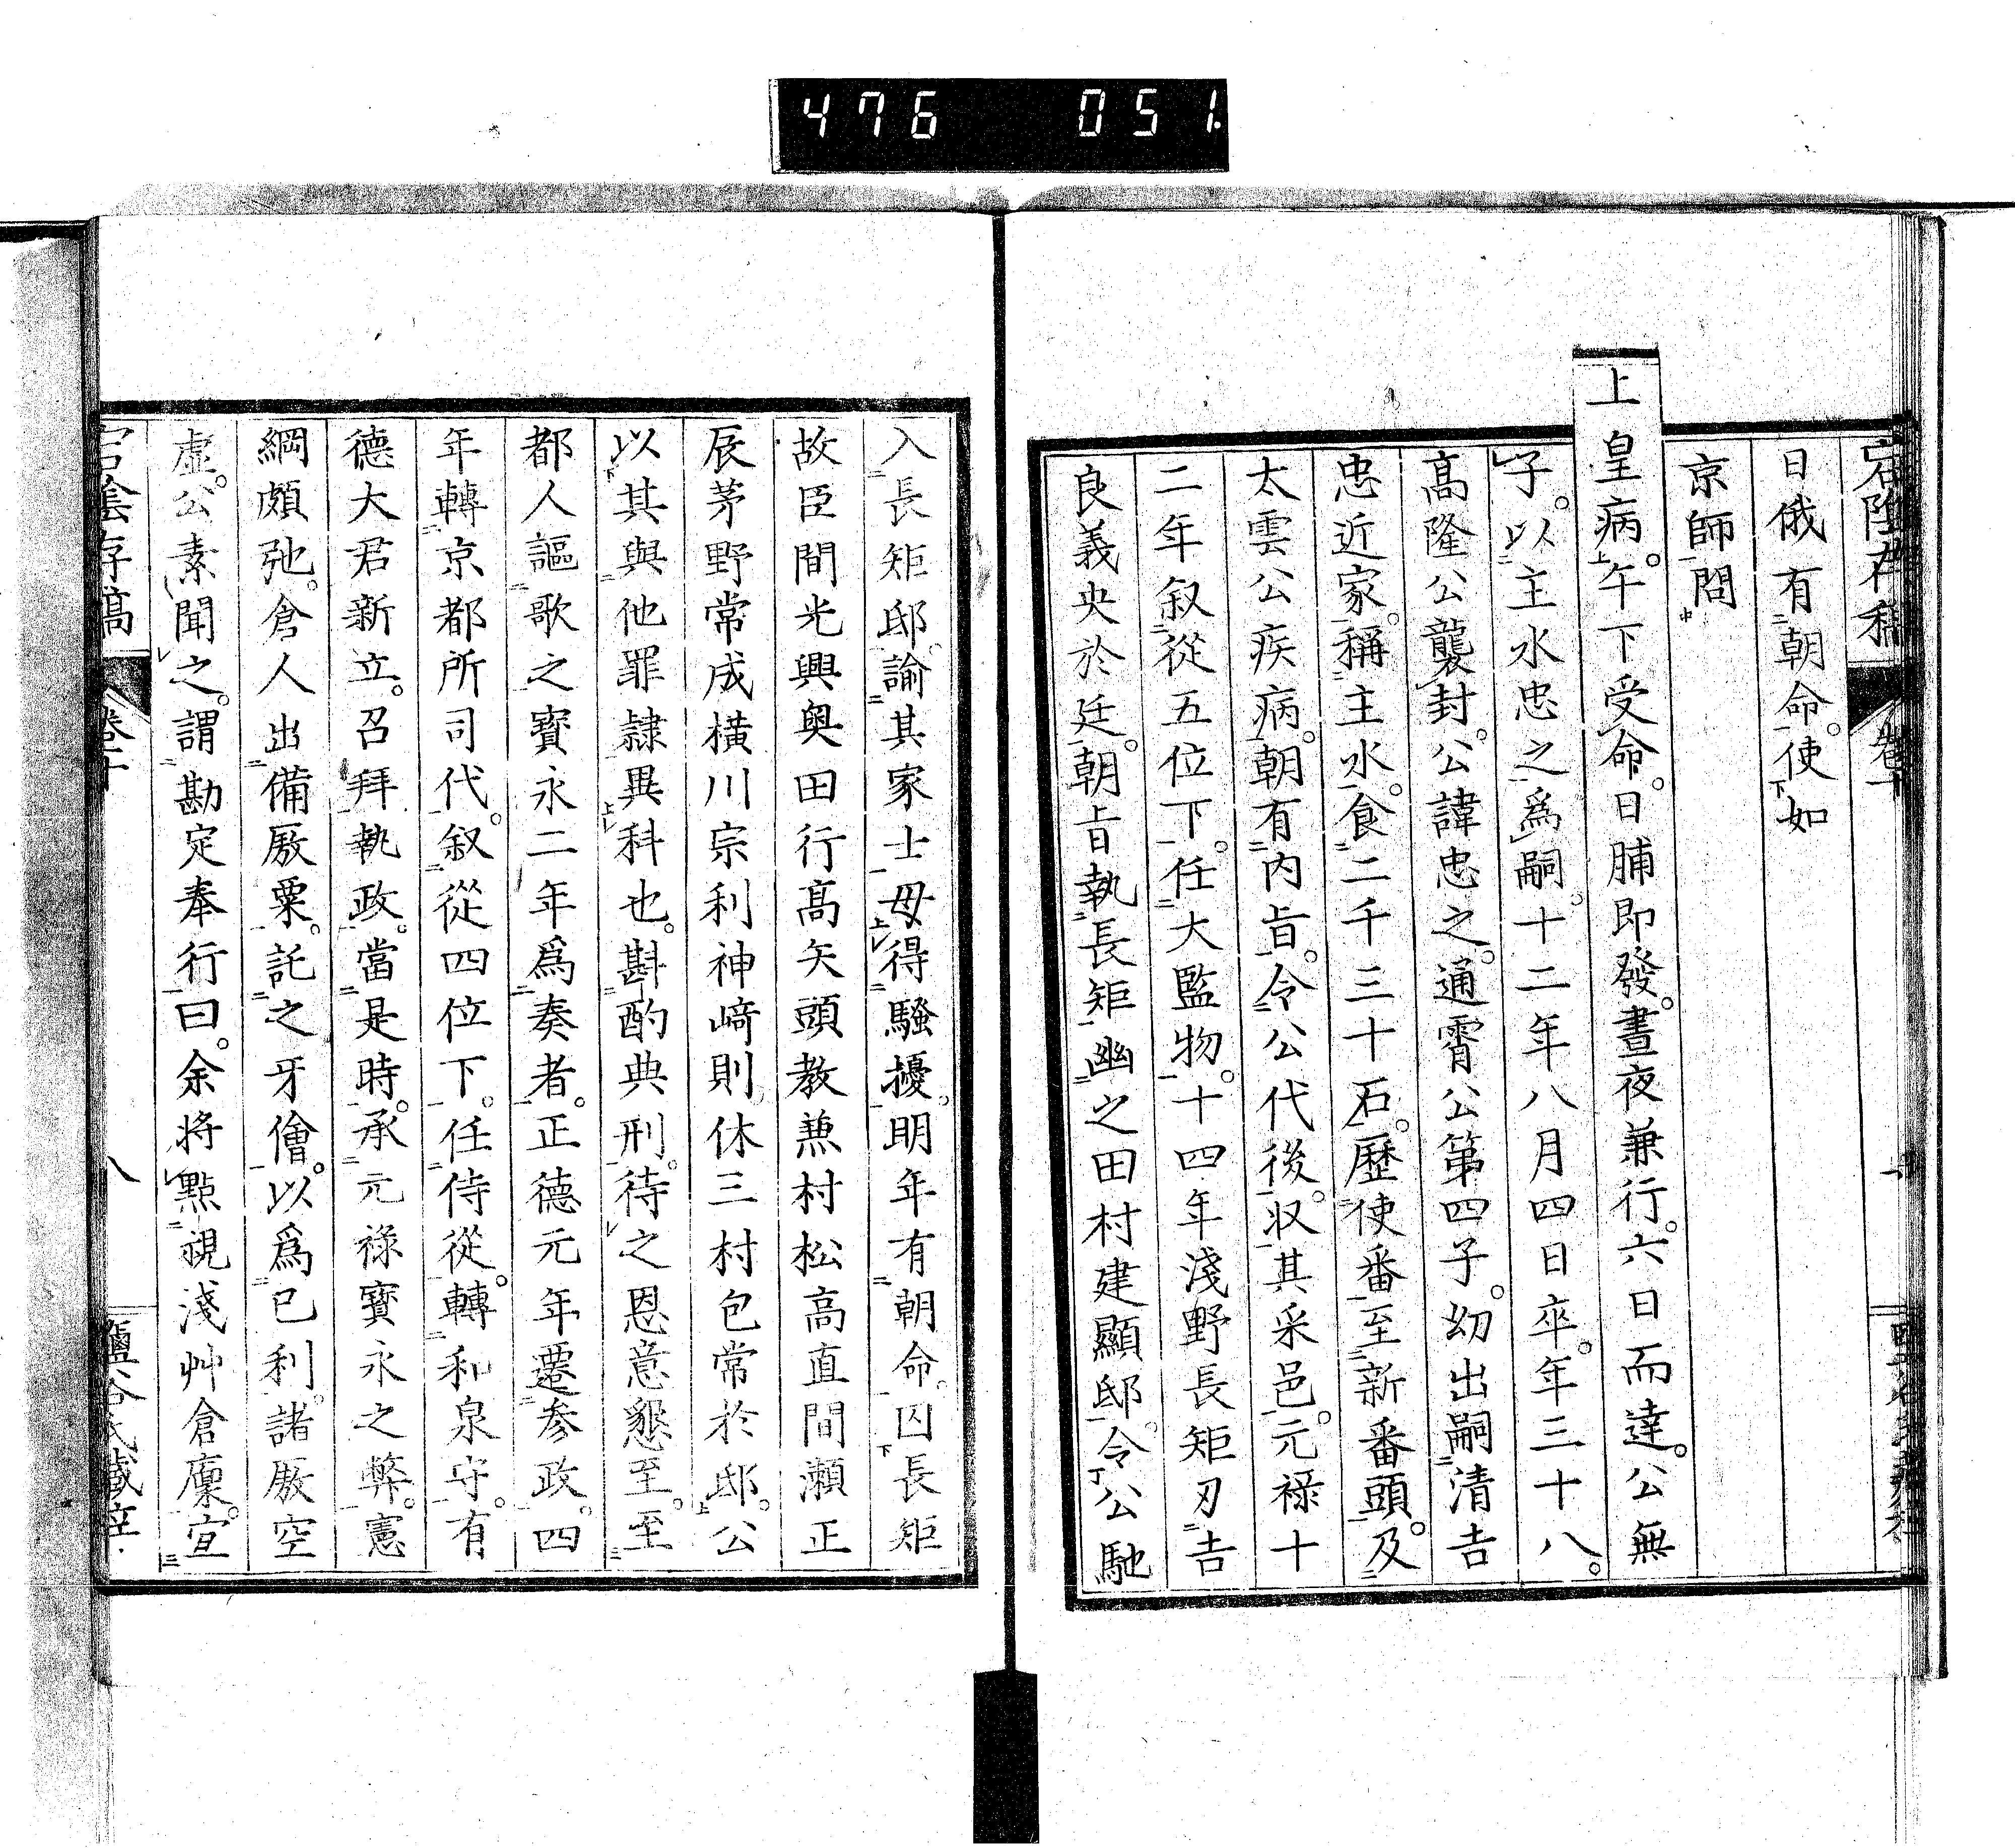 476 051
日俄有朝命。使如
京師問
上皇病。午下受命。日脯即發。晝夜兼行。六日而達。公無
子。以主水忠之爲嗣。十二年八月四日卒。年三十八。
高隆公襲封。公諱忠之。通霄公第四子。幼出嗣清吉
忠近家。稱主水。食二千三十石。歷使番。至新番頭。及
太雲公疾病。朝有內旨。令公代後。収其采邑。元祿十
二年叙從五位下。任大監物。十四年淺野長矩刃吉
良義央於廷。朝旨執長矩。幽之田村建顯邸。令公馳
入長矩邸。諭其家士毋得騷擾。明年有朝命。囚長矩
故臣間光興奥田行高矢頭教兼村松高直間瀨正
辰茅野常成橫川宗利神﨑則休三村包常於邸。公
以其與他罪隸異科也。斟酌典刑。待之恩意懇至。至
都人謳歌之。寶永二年爲奏者。正德元年遷參政。四
年轉京都所司代。叙從四位下。任侍從。轉和泉守。有
德大君新立。召拜執政。當是時。承元祿寶永之弊。憲
綱頗弛。倉人出備厫粟。託之牙儈。以爲已利。諸厫空
虛。公素聞之。謂勘定奉行曰。余將點視淺艸倉廩。宣
宕陰存稿 卷十 八 鹽谷氏藏